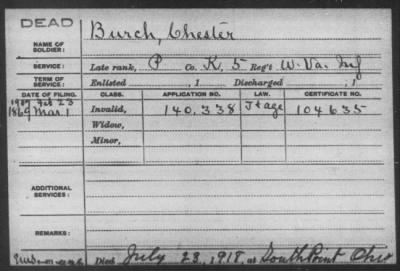 DEAD
NAME OF SOLDIER: Burch, Chester
SERVICE: Late rank, P Co. K, 5 Reg't W. Va. Inf
TERM OF SERVICE: Enlisted , 1 Discharged , 1
DATE OF FILING. CLASS. APPLICATION NO. LAW. CERTIFICATE NO.
1907 Feb 23
1869 Mar 1 Invalid, 140.338 J & age 104635
Widow,
Minor,
ADDITIONAL SERVICES:
REMARKS:
Died July 23, 1918, at South Point Ohio